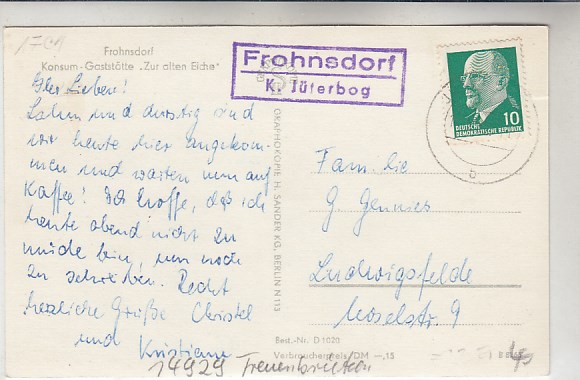 1701
Frohnsdorf
Konsum-Gaststätte „Zur alten Eiche"
Frohnsdorf
K. Jüterbog
10
DEUTSCHE
DEMOKRATISCHE REPUBLIK
Ihr Lieben!
Lahm und durstig sind
wir heute hier angekom-
men und warten nun auf
Kaffee! Ich hoffe, daß ich
heute abend nicht zu
müde bin, um noch
zu schreiben. Recht
herzliche Grüße Christel
und Kristiane
OKAPHOKOPIE H. SANDER KG., BERLIN N 113
Familie
G. Gennies
Ludwigsfelde
Moselstr. 9
b
Best.-Nr. D 1020
Verbraucherpreis /DM —,15
14929 Treuenbrietzen